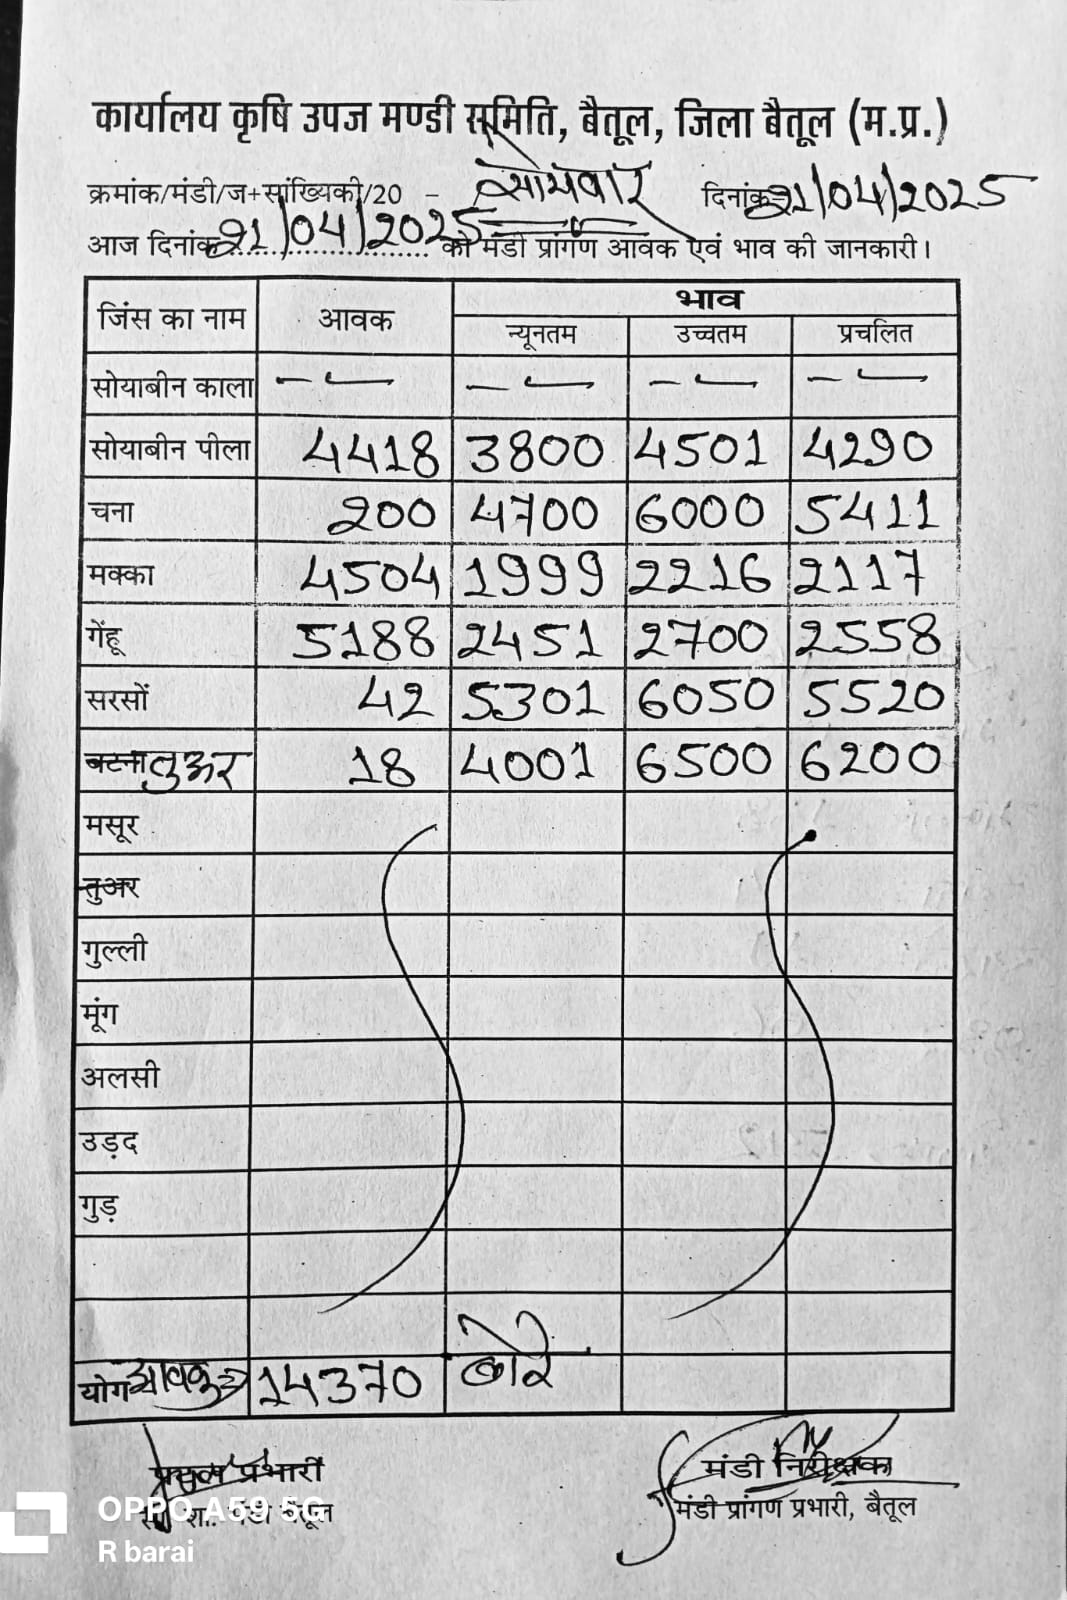 कार्यालय कृषि उपज मण्डी समिति, बैतूल, जिला बैतूल (म.प्र.)
क्रमांक/मंडी/ज+सांख्यिकी/20 - सोमवार दिनांक 21/04/2025
आज दिनांक 21/04/2025 को मंडी प्रांगण आवक एवं भाव की जानकारी।
जिंस का नाम आवक भाव
न्यूनतम उच्चतम प्रचलित
सोयाबीन काला -- -- -- --
सोयाबीन पीला 4418 3800 4501 4290
चना 200 4700 6000 5411
मक्का 4504 1999 2216 2117
गेंहू 5188 2451 2700 2558
सरसों 42 5301 6050 5520
बटना तुअर 18 4001 6500 6200
मसूर
तुअर
गुल्ली
मूंग
अलसी
उड़द
गुड़
योग आवक 14370 बोरे
प्रभारी मंडी निरीक्षक
मंडी प्रांगण प्रभारी, बैतूल
OPPO A59 5G
R barai